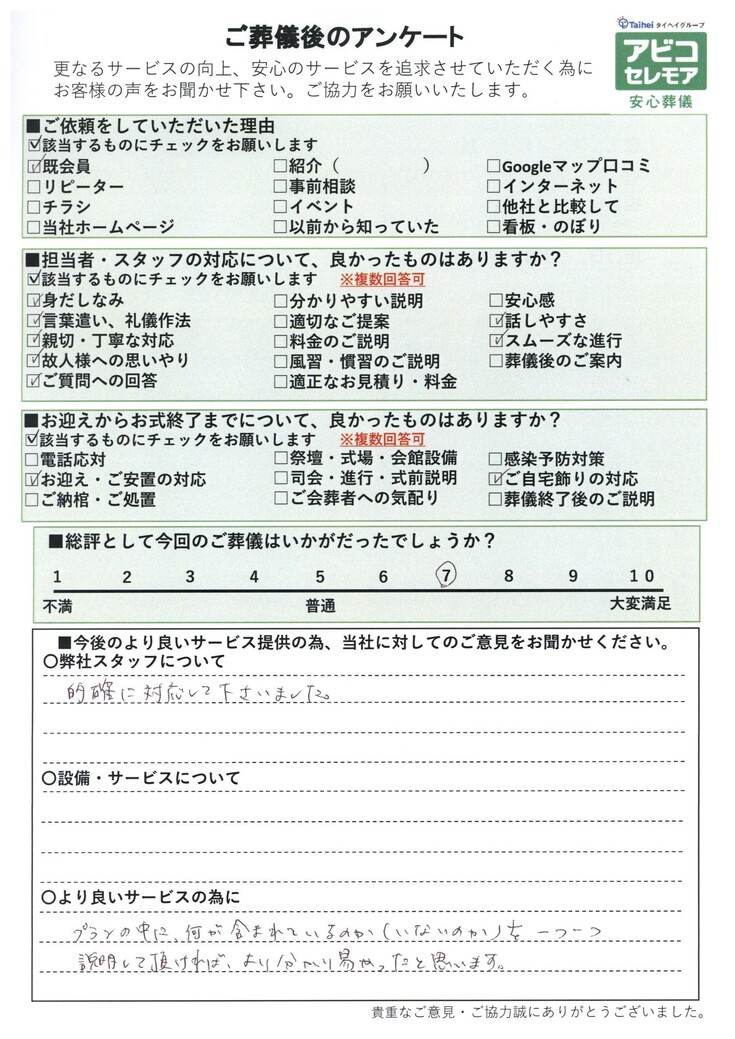 ご葬儀後のアンケート
Taihei タイヘイグループ
アビコ
セレモア
安心葬儀
更なるサービスの向上、安心のサービスを追求させていただく為に
お客様の声をお聞かせ下さい。ご協力をお願いいたします。
■ご依頼をしていただいた理由
☑該当するものにチェックをお願いします
☑既会員 □紹介（　　　　　） □Googleマップ口コミ
□リピーター □事前相談 □インターネット
□チラシ □イベント □他社と比較して
□当社ホームページ □以前から知っていた □看板・のぼり
■担当者・スタッフの対応について、良かったものはありますか？
☑該当するものにチェックをお願いします ※複数回答可
☑身だしなみ □分かりやすい説明 □安心感
☑言葉遣い、礼儀作法 □適切なご提案 ☑話しやすさ
☑親切・丁寧な対応 □料金のご説明 ☑スムーズな進行
☑故人様への思いやり □風習・慣習のご説明 □葬儀後のご案内
☑ご質問への回答 □適正なお見積り・料金
■お迎えからお式終了までについて、良かったものはありますか？
☑該当するものにチェックをお願いします ※複数回答可
□電話応対 □祭壇・式場・会館設備 □感染予防対策
☑お迎え・ご安置の対応 □司会・進行・式前説明 ☑ご自宅飾りの対応
□ご納棺・ご処置 □ご会葬者への気配り □葬儀終了後のご説明
■総評として今回のご葬儀はいかがだったでしょうか？
1 2 3 4 5 6 7 8 9 10
不満 普通 大変満足
■今後のより良いサービス提供の為、当社に対してのご意見をお聞かせください。
〇弊社スタッフについて
的確に対応して下さいました。
〇設備・サービスについて
〇より良いサービスの為に
プランの中に、何が含まれているのか（いないのか）を一つ一つ
説明して頂ければ、より分かり易かったと思います。
貴重なご意見・ご協力誠にありがとうございました。